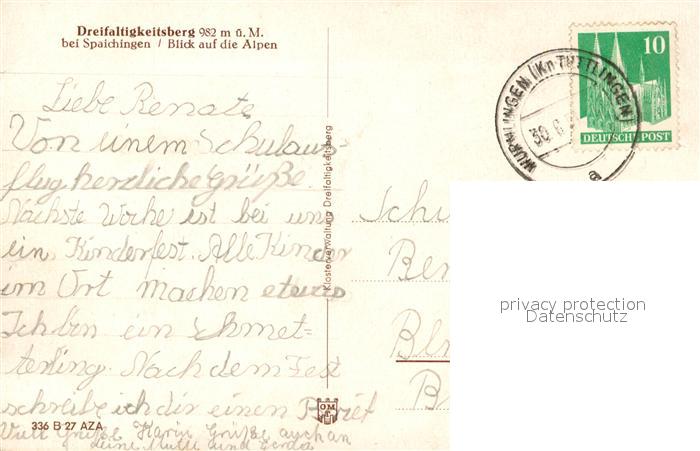 Dreifaltigkeitsberg 982 m ü. M.
bei Spaichingen / Blick auf die Alpen
Liebe Renate
Von einem Schulaus-
flug herzliche Grüße.
Nächste Woche ist bei uns
ein Kinderfest. Alle Kinder
im Ort machen etwas
Ich bin ein Schmet=
terling. Nach dem Fest
schreibe ich dir einen Brief
Viele Grüße Karin Grüße auch an
deine Mutti und
336 B 27 AZA
Klosterverwaltung Dreifaltigkeitsberg
OM
WURMLINGEN (Kr. TUTTLINGEN)
30. 6
10
DEUTSCHE POST
Sch
Ber
Bl
B
privacy protection
Datenschutz